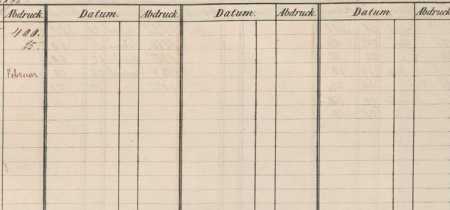 Abdruck. Datum. Abdruck. Datum. Abdruck. Datum. Abdruck.
400.
15.
Februar